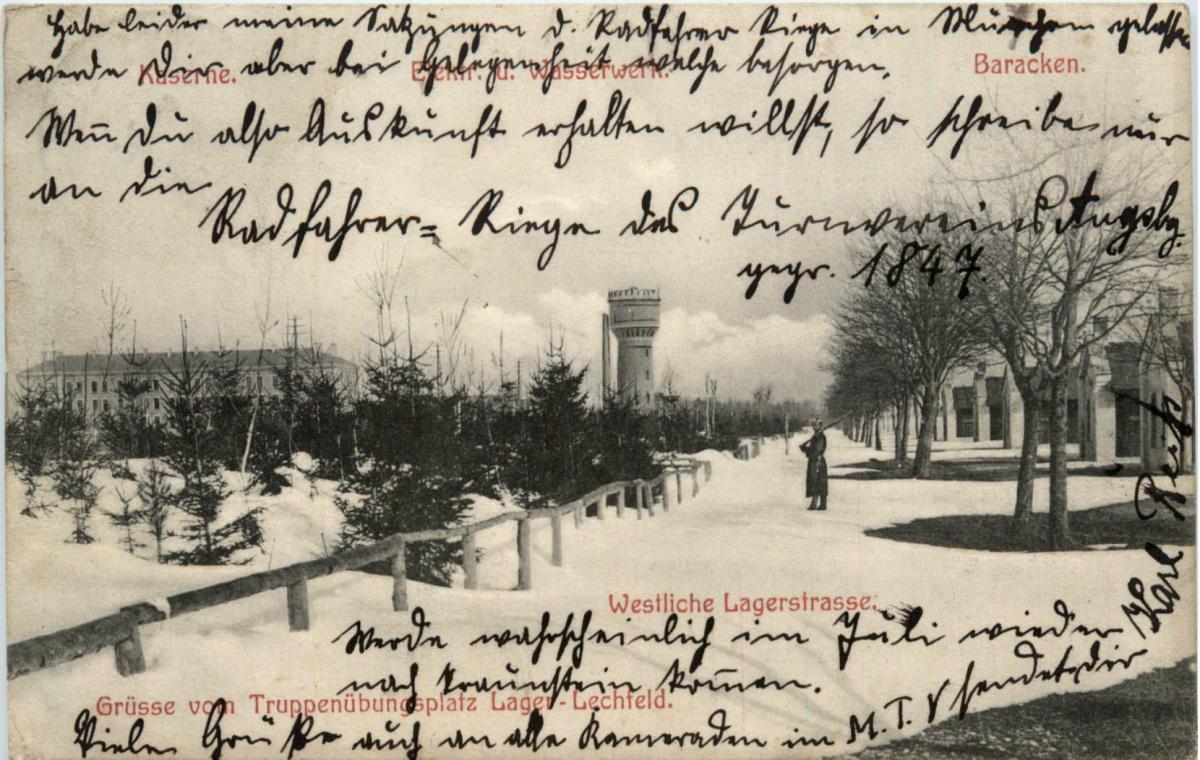 Habe leider meine Satzungen d. Radfahrer Riege in München gelassen
werde Dir aber bei Gelegenheit welche besorgen.
Kaserne.
Elektr. u. Wasserwerk.
Baracken.
Wen̄ Du also Auskunft erhalten willst, so schreibe nur
an die
Radfahrer= Riege des Turnvereins Augsbg.
gegr. 1847.
Westliche Lagerstrasse.
Werde wahrscheinlich im Juli wieder
nach Traunstein kom̄en.
Grüsse vom Truppenübungsplatz Lager-Lechfeld.
Viele Grüße auch an alle Kameraden im M. T. V sendet dir
Karl